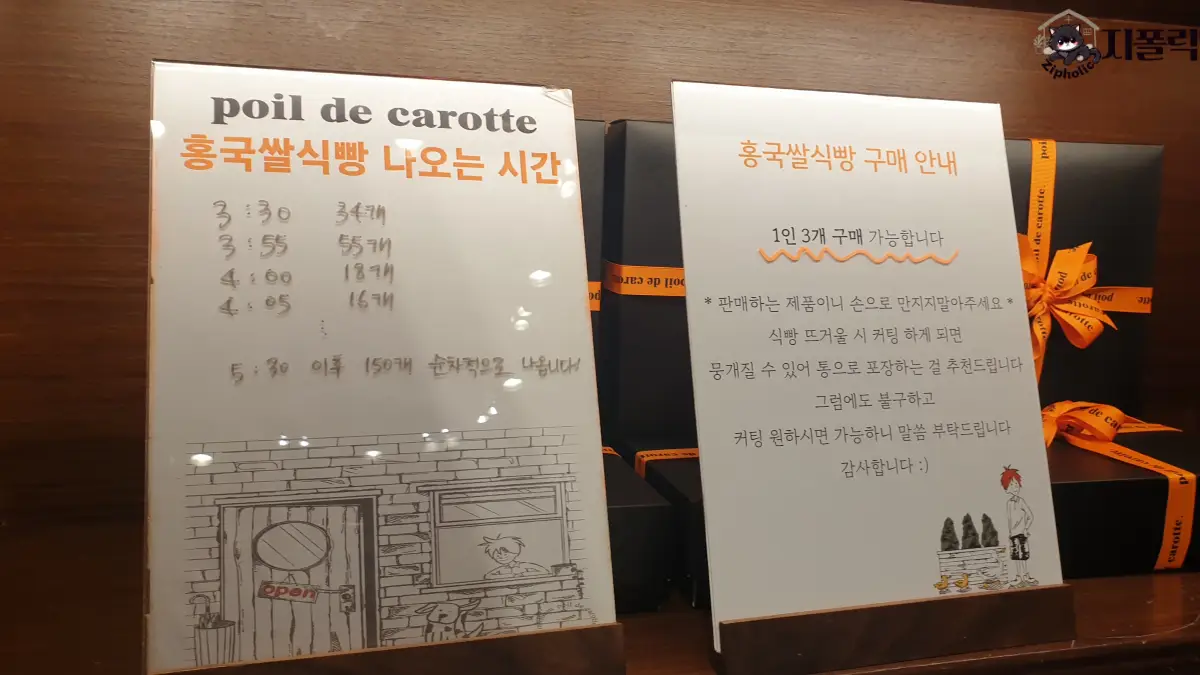 poil de carotte
홍국쌀식빵 나오는 시간
3:30 34개
3:55 55개
4:00 18개
4:05 16개
⋮
5:30 이후 150개 순차적으로 나옵니다!
open
홍국쌀식빵 구매 안내
1인 3개 구매 가능합니다
* 판매하는 제품이니 손으로 만지지말아주세요 *
식빵 뜨거울 시 커팅 하게 되면
뭉개질 수 있어 통으로 포장하는 걸 추천드립니다
그럼에도 불구하고
커팅 원하시면 가능하니 말씀 부탁드립니다
감사합니다 :)
poil de carotte
poil de carotte.
poil de
carotte.
Zipholic
지폴릭